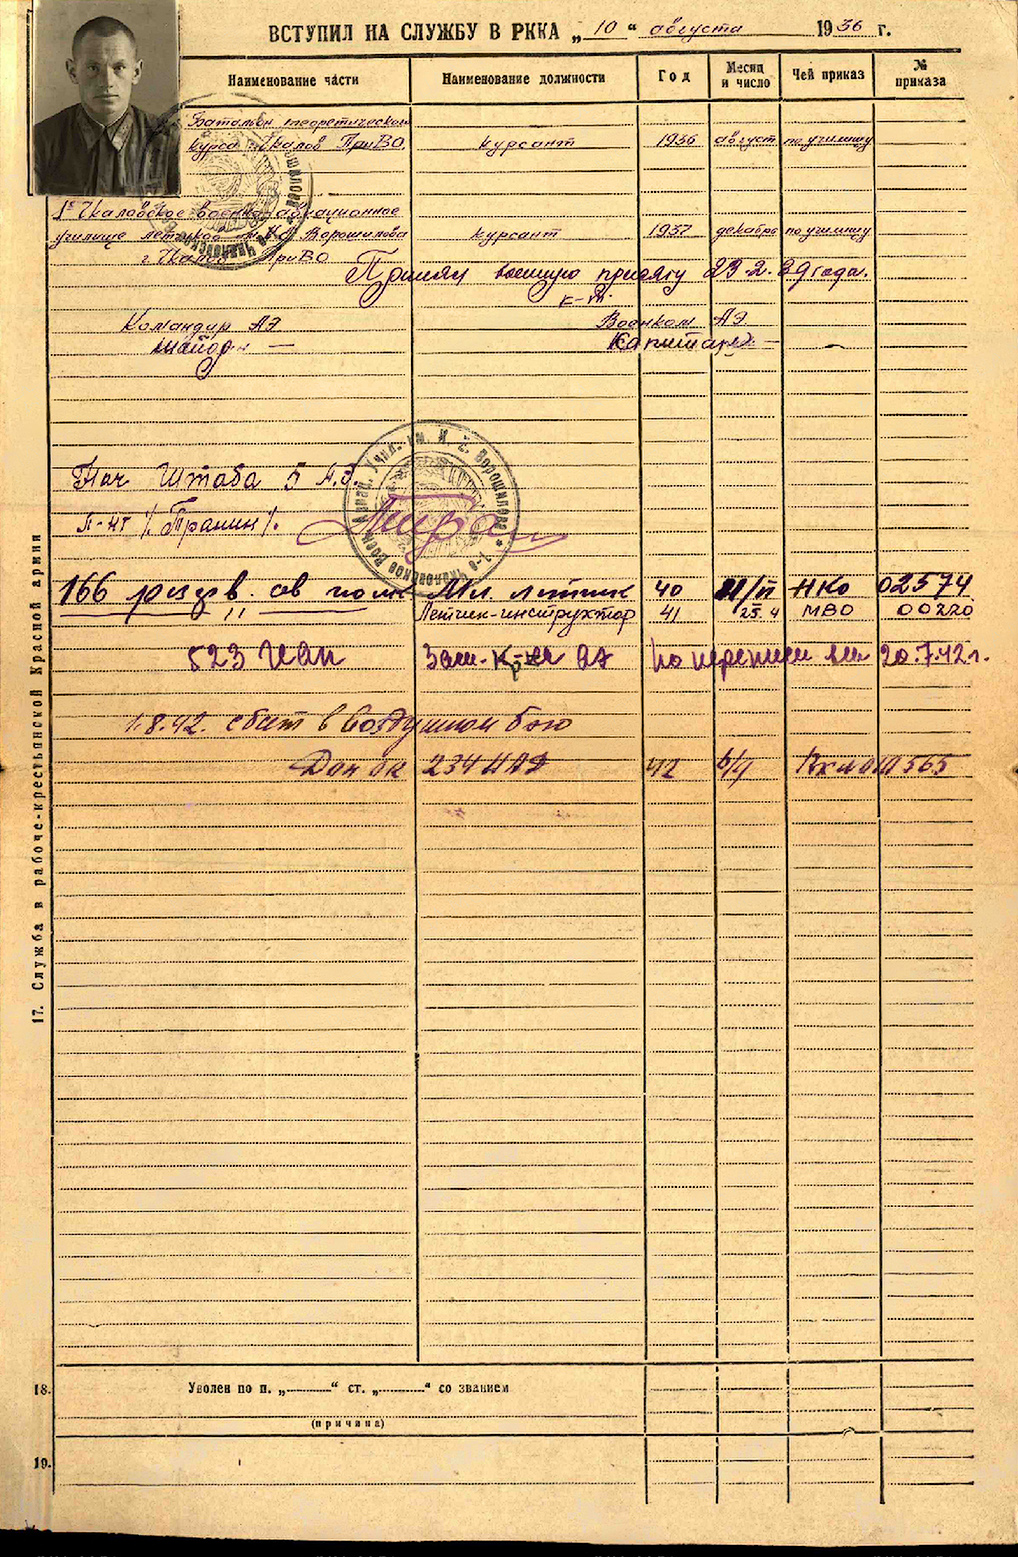 ВСТУПИЛ НА СЛУЖБУ В РККА „ 10 “ августа 1936 г.
Наименование части Наименование должности Год Месяц и число Чей приказ № приказа
Батальон теоретической
курса Чкалов ПриВО курсант 1936 август по училищу
1е Чкаловское военно-авиационное
училище летчиков им. К.Е. Ворошилова курсант 1937 декабрь по училищу
г. Чкалов ПриВО
Принял военную присягу 23.2.39 года.
к-т.
Командир АЭ Военком АЭ.
майор — Капитан —
Нач Штаба 5 А.Э.
л-нт /Пранин/.
166 резерв. ав полк Мл. летчик 40 II НКО 02574
" Летчик-инструктор 41 25.4 МВО 00220
523 ИАП Зам. к-ра аэ 20.7.42 г.
1.8.42. сбит в воздушном бою
234 ИАД 42 565
17. Служба в рабоче-крестьянской Красной армии
18. Уволен по п. „ “ ст. „ “ со званием
(причина)
19.